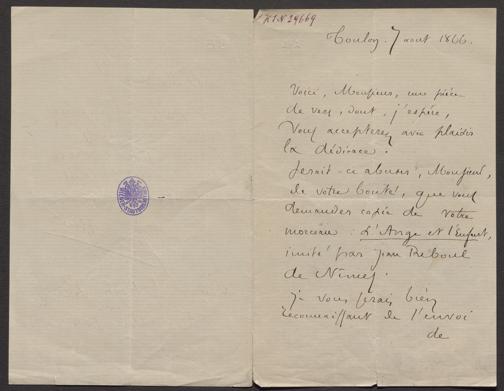 K.I.N 29669
Toulon. 7 aout 1866.
Voici, Monsieur, une pièce
de vers, dont, j'espère,
Vous accepterez avec plaisir
la dédicace.
Serait-ce abuser, Monsieur,
de votre bonté, que vous
demander copie de votre
morceau: L'Ange et l'Enfant,
imité par Jean Reboul
de Nîmes.
je vous serais bien
reconnaissant de l'envoi
de